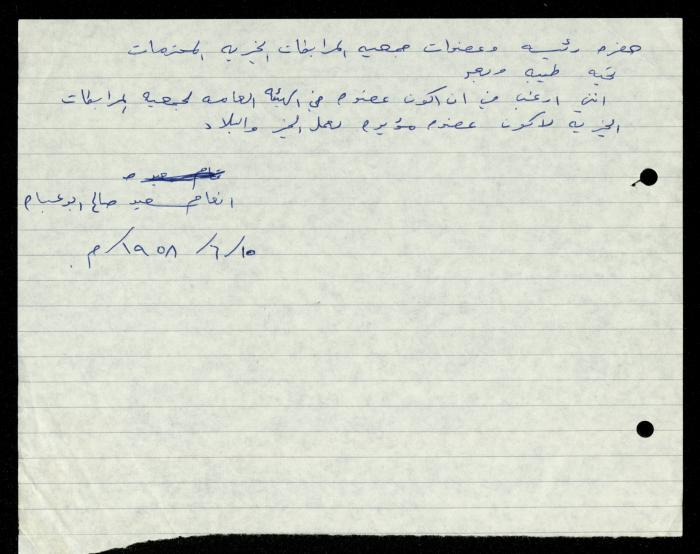 حضره رئيسه وعضوات جمعيه المرابطات الخيريه المحترمات
تحيه طيبه وبعد
انني ارغب في ان اكون عضوه في الهيئه العامه لجمعيه المرابطات
الخيريه لاكون عضوه مؤيده لعمل الخير والبلاد
انعام سعيد صالح ابو عصام
١٠/ ٦/ ١٩٥٨/م